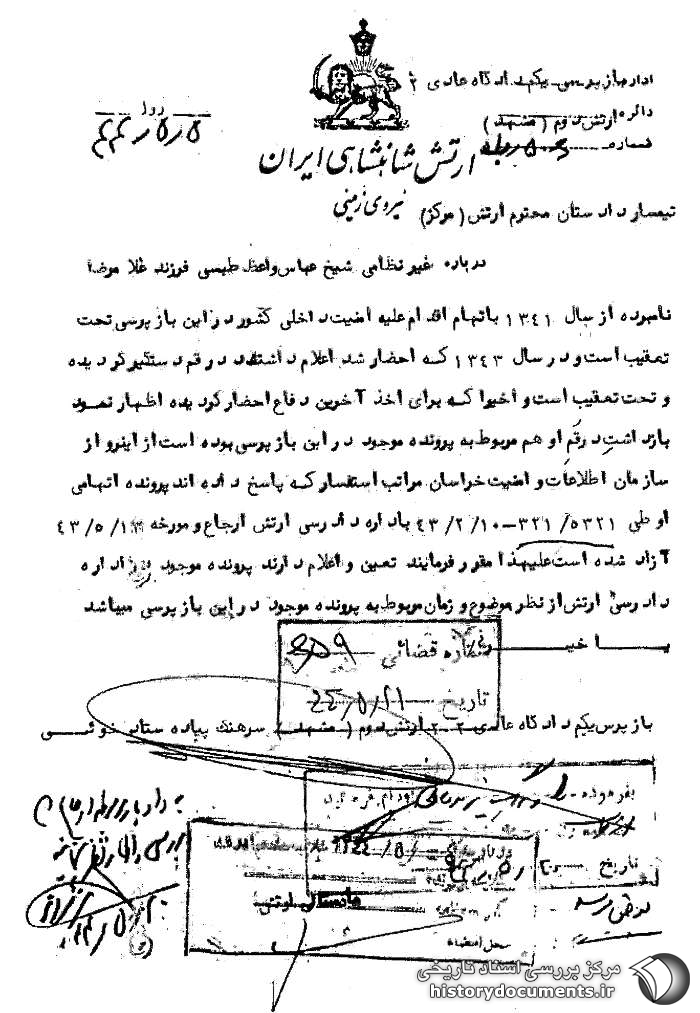 اداره بازپرسی یکم دادگاه عادی ۲
دائره ارتش دوم (مشهد)
شماره
۴۴/۵/۵
ارتش شاهنشاهی ایران
نیروی زمینی
تیمسار دادستان محترم ارتش (مرکز)
درباره غیر نظامی شیخ عباس واعظ طبسی فرزند غلامرضا
نامبرده از سال ۱۳۴۱ باتهام اقدام علیه امنیت داخلی کشور در این بازپرسی تحت
تعقیب است و در سال ۱۳۴۳ که احضار شد اعلام داشتند در قم دستگیر گردیده
و تحت تعقیب است و اخیرا که برای اخذ آخرین دفاع احضار گردیده اظهار نمود
بازداشت در قم او هم مربوط به پرونده موجود در این بازپرسی بوده است از اینرو از
سازمان اطلاعات و امنیت خراسان مراتب استفسار که پاسخ داده اند پرونده اتهامی
او طی ۵۳۲۱/۳۲۱-۴۳/۲/۱۰ باداره دادرسی ارتش ارجاع و مورخه ۴۳/۵/۱۳
آزاد شده است علیهذا مقرر فرمایند تعیین و اعلام دارند پرونده موجود در اداره
دادرسی ارتش از نظر موضوع و زمان مربوط به پرونده موجود در این بازپرسی میباشد
یا خیر
شماره قضائی
تاریخ ۴۴/۵/۲۱
بازپرس یکم دادگاه عادی ۲ ارتش دوم (مشهد) سرهنگ پیاده ستاد خوئی
بفرموده
تاریخ
دادستان ارتش
محل امضاء
مرکز بررسی اسناد تاریخی
historydocuments.ir